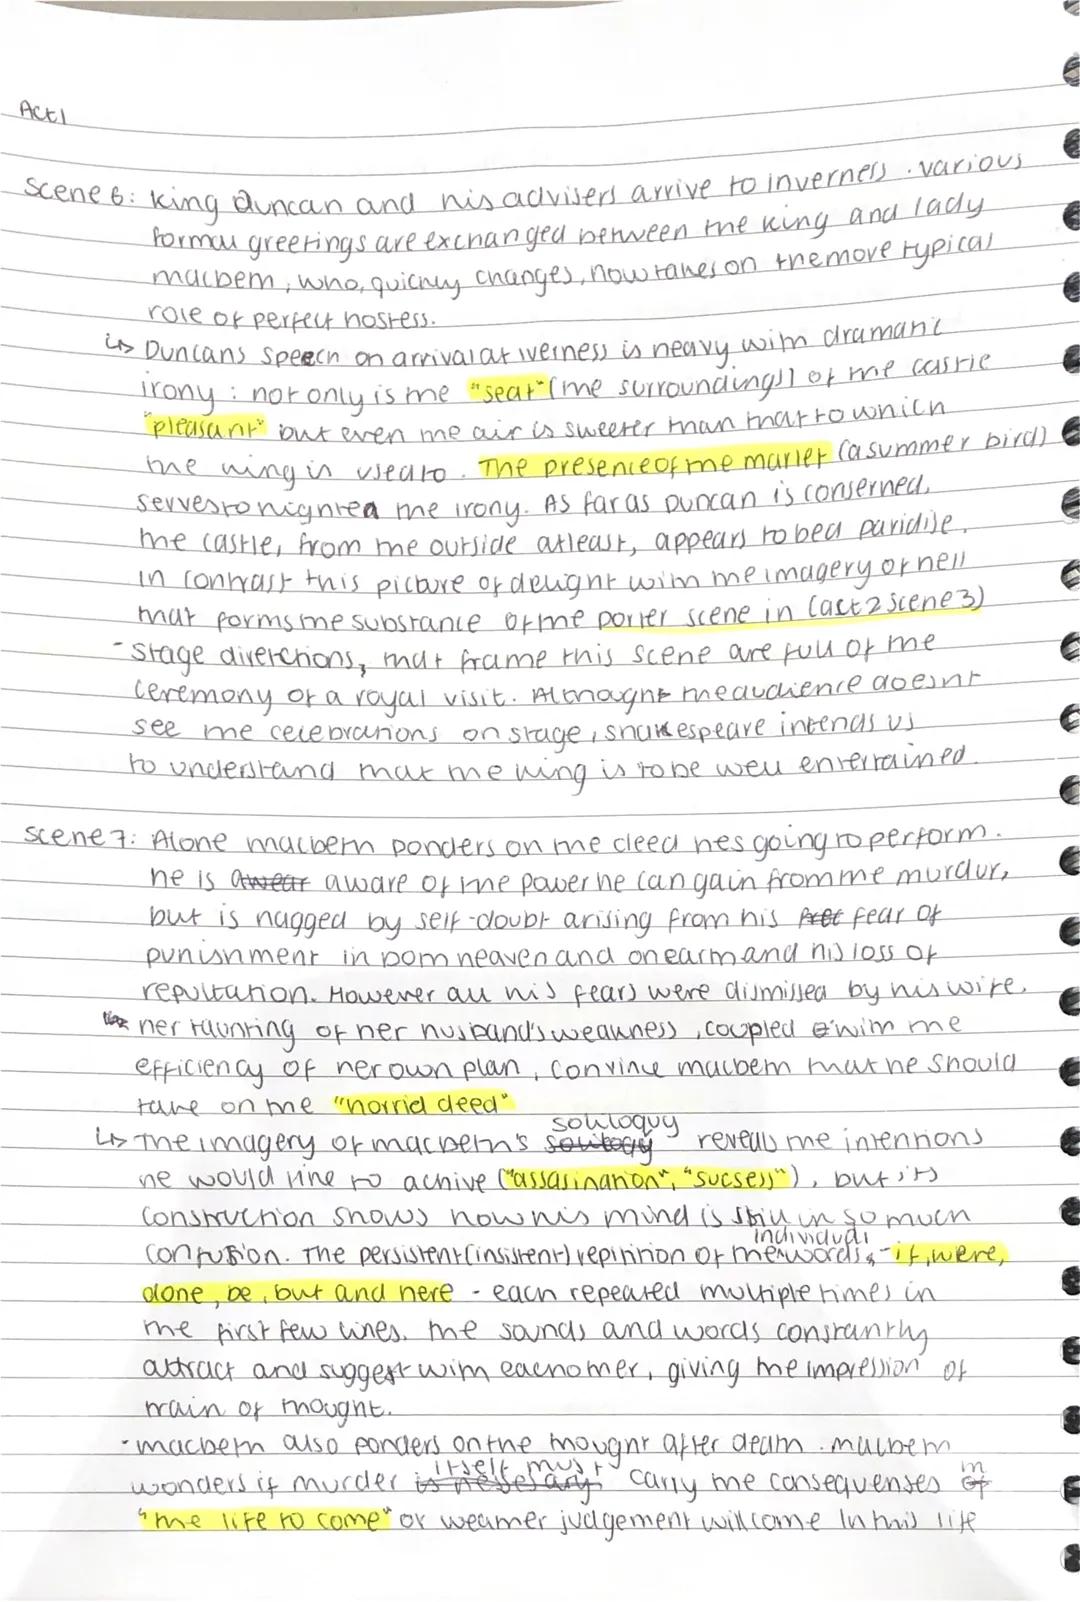 Act 1
Scene 6: King Duncan and his advisers arrive to inverness. various
formal greetings are exchanged between the king and lady
macbeth, who, quickly changes, now takes on the move typical
role of perfect hostess.
↳ Duncans speech on arrival at iverness is heavy with dramatic
irony: not only is the "seat" (the surroundings) of the castle
"pleasant" but even the air is sweeter than that to which
the king is used to. The presence of the marlet (a summer bird)
serves to highten the irony. As far as Duncan is conserned,
the castle, from the outside atleast, appears to be a paridise.
in contrast this picture of delight with the imagery of hell
that forms the substance of the porter scene in (act 2 scene 3)
- Stage directions, that frame this scene are full of the
ceremony of a royal visit. Althought the audience doesnt
see the celebrations on stage, shakespeare intends us
to understand that the king is to be well entertained.
Scene 7: Alone macbeth ponders on the deed hes going to perform.
he is awear aware of the power he can gain from the murdur,
but is nagged by self-doubt arising from his fear of
punishment in both heaven and on earth and his loss of
repultation. However all his fears were dismissed by his wife.
her taunting of her husband's weakness, coupled with the
efficiency of her own plan, convince macbeth that he should
take on the "horrid deed"
soliloquy
↳ The imagery of macbeth's reveals the intentions
he would like to achive ("assasination", "sucsess"), but its
construction shows how his mind is still in so much
individual
confusion. The persistent (insistent) repitition of the words, - if, were,
done, be, but and here - each repeated multiple times in
the first few lines. the sounds and words constantly
attract and suggest with eachother, giving the impression of
train of thought.
- macbeth also ponders on the thought after death. macbeth
itself must in
wonders if murder is nessesary carry the consequenses of
"the life to come" or weather judgement will come in this life